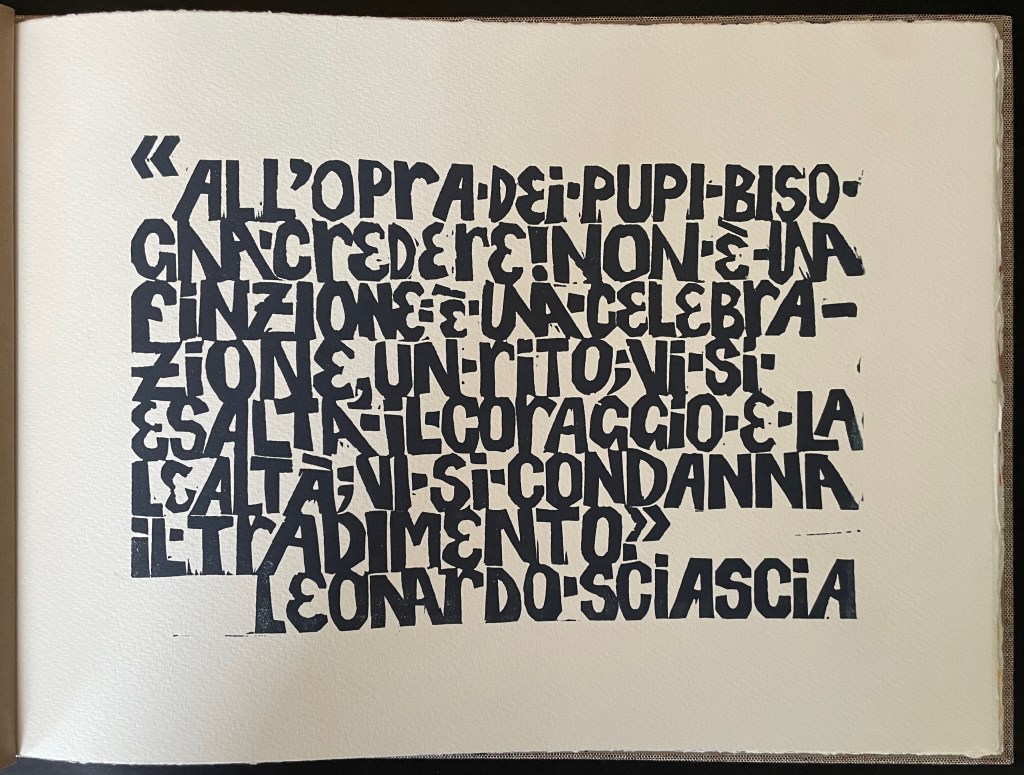 «ALL'OPrA·DEi·PUPI·BISO·
GNA·CrEDErE!NON·È·UNA
FiNZIONE·È·UNA·CELEBrA-
ZiONE,UN·riTO;Vi·Si·
ESALTA·iL·COrAGGiO·E·LA
LEALTÀ;Vi·Si·CONDANNA
iL·TrADIMENTO.»
LEONArDO·SCiASCiA